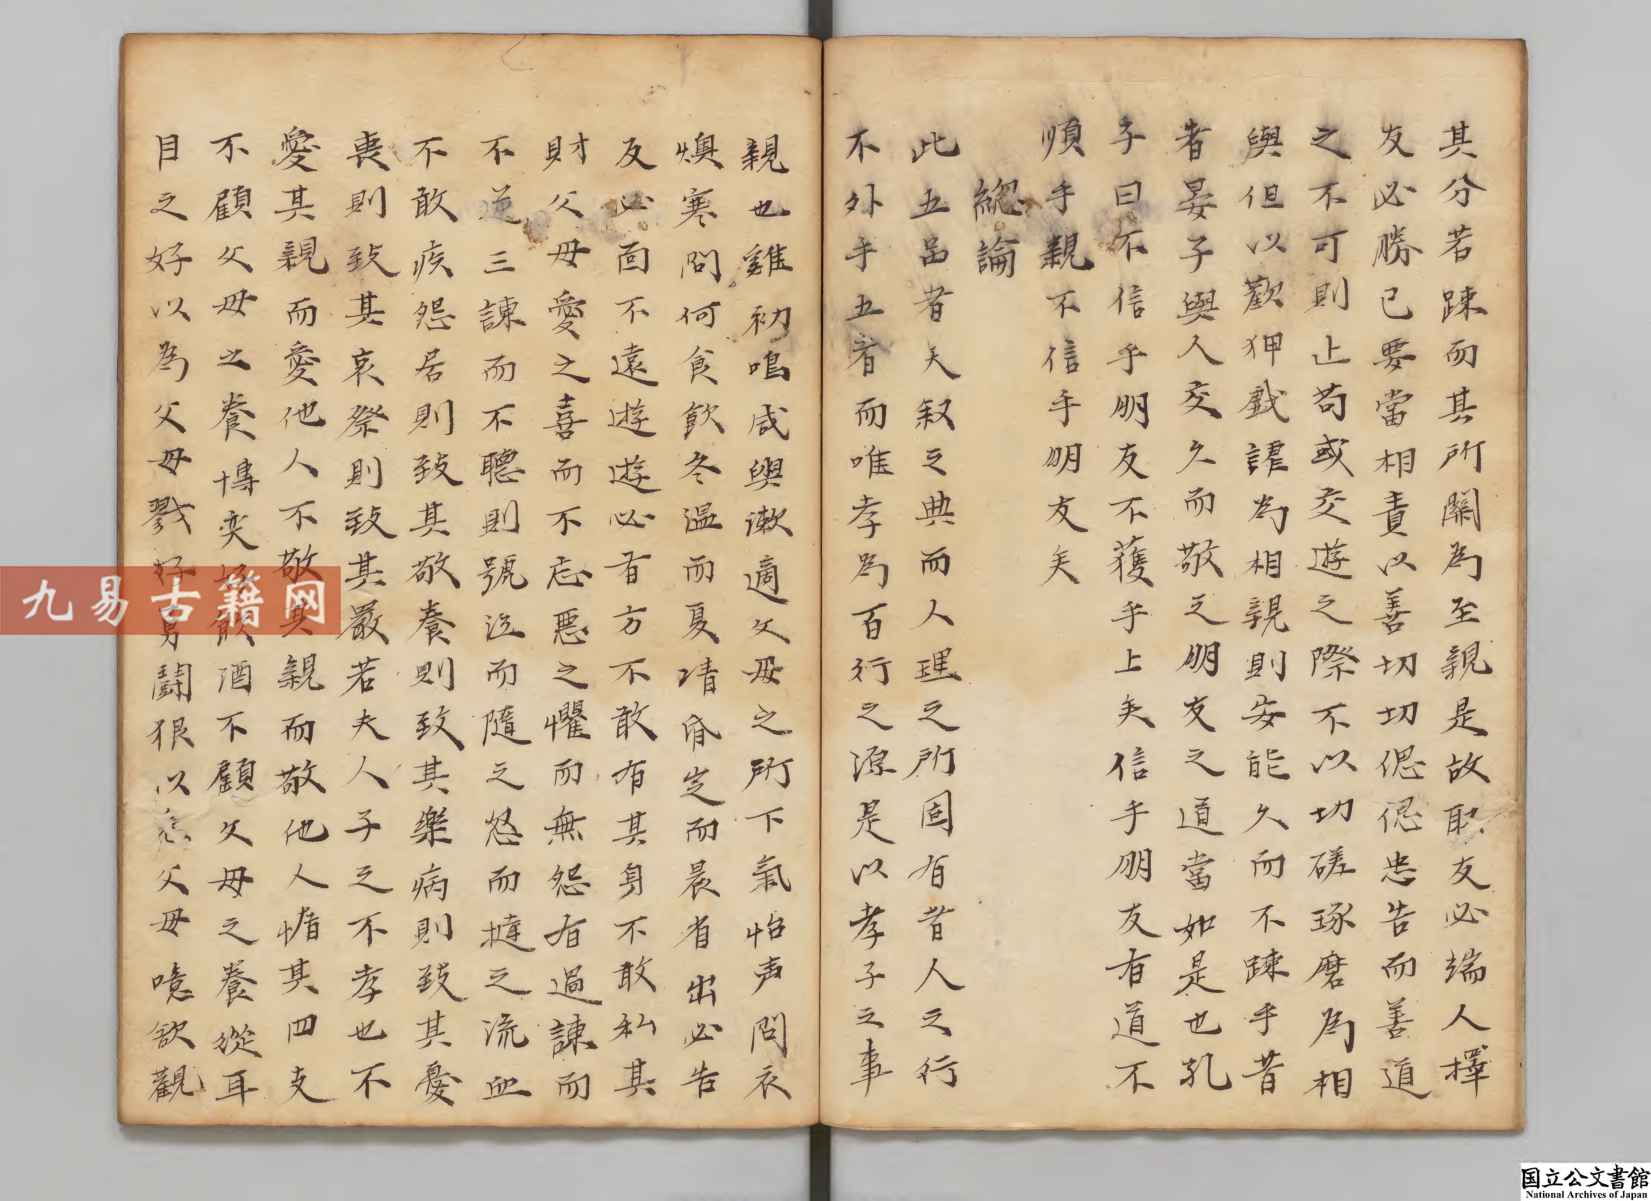 其分若踈而其所關為至親是故取友必端人擇
友必勝已要當相責以善切切偲偲忠告而善道
之不可則止苟或交遊之際不以切磋琢磨為相
與但以歡狎戲謔為相親則安能久而不踈乎昔
者晏子與人交久而敬之朋友之道當如是也孔
子曰不信乎朋友不獲乎上矣信乎朋友有道不
順乎親不信乎朋友矣
總論
此五品者天叙之典而人理之所固有昔人之行
不外乎五者而唯孝為百行之源是以孝子之事
親也雞初鳴咸與漱適父母之所下氣怡声問衣
燠寒問何食飲冬温而夏凊昏定而晨省出必告
反必面不遠遊遊必有方不敢有其身不敢私其
財父母愛之喜而不忘惡之懼而無怨有過諫而
不逆三諫而不聽則號泣而隨之怒而撻之流血
不敢疾怨居則致其敬養則致其樂病則致其憂
喪則致其哀祭則致其嚴若夫人子之不孝也不
愛其親而愛他人不敬其親而敬他人惰其四支
不顧父母之養博奕好飲酒不顧父母之養從耳
目之好以為父母戮好勇鬪狠以危父母噫欲觀
九易古籍网
国立公文書館
National Archives of Japan